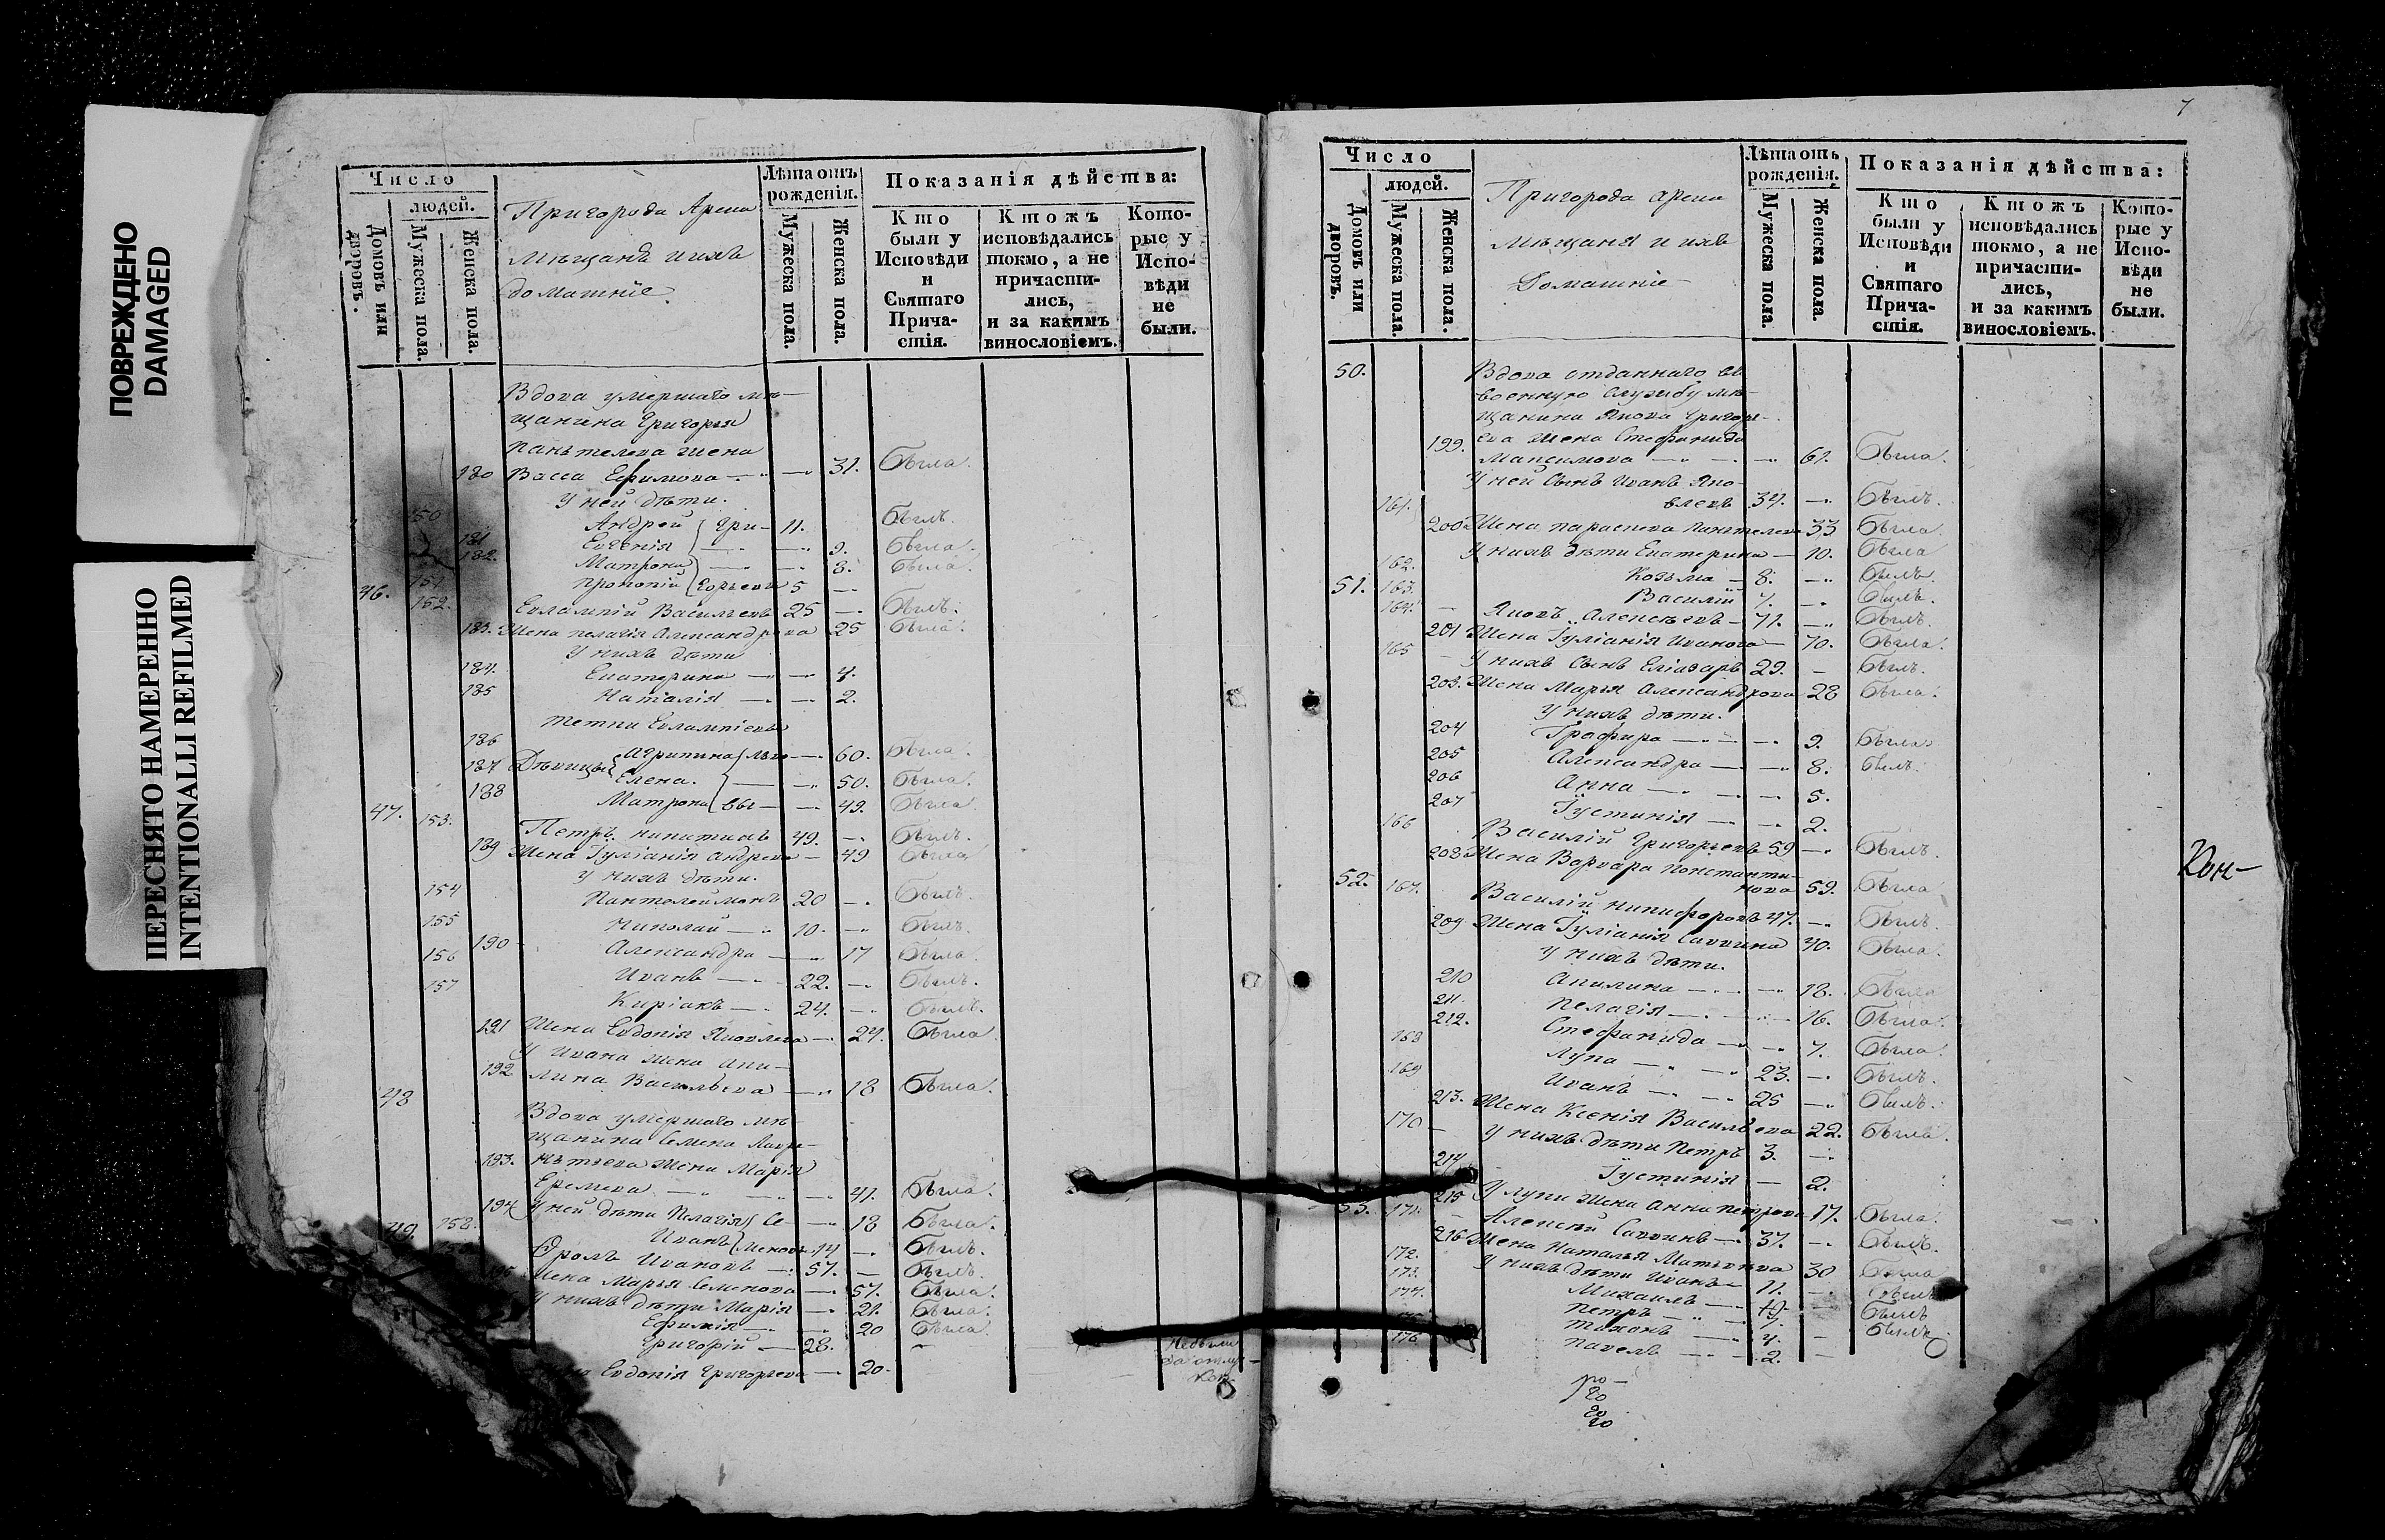 ПОВРЕЖДЕНО
DAMAGED
ПЕРЕСНЯТО НАМЕРЕННО
INTENTIONALLI REFILMED
Число
людей.
Домовъ или дворовъ.
Мужеска пола.
Женска пола.
Пригорода Арска
Мѣщанъ и ихъ
домашніе.
Лѣта отъ рожденія.
Мужеска пола.
Женска пола.
Показанія дѣйства:
Кто были у Исповѣди и Святаго Прича-стія.
Ктожъ исповѣдались токмо, а не причасти-лись, и за какимъ винословіемъ.
Кото-рые у Испо-вѣди не были.
Вдова умершаго мѣ-
щанина Григорья
Пантелева жена
180 Васса Ефимова — 31. Была.
У ней дѣти.
150 Андрей Гри- 11. Былъ.
181 Евгенія — 9. Была.
182. Матрона — 8. Была.
151 Прокопій Горьевъ 5 —
46. 152. Евлампій Васильевъ 25 — Былъ.
183. Жена Пелагія Александрова 25 Была.
У нихъ дѣти
184. Екатерина — 4.
185 Наталія — 2.
Тетки Евлампіевы
186 Дѣвицы Агрипина — 60. Была.
187 Елена. — 50. Была.
188 Матрона — 49. Была.
47. 153. Петръ Никитинъ 49. — Былъ.
189 Жена Іуліанія Андреева — 49 Была.
У нихъ дѣти.
154 Пантолеймонъ 20 — Былъ.
155 Николай — 10. — Былъ.
190 Александра — 17 Была.
156 Иванъ — 22. — Былъ.
157 Киріакъ — 24. — Былъ.
191 Жена Евдокія Яковлева — 24. Была.
У Ивана жена Аку-
192 лина Васильева — 18 Была.
48 Вдова умершаго мѣ-
щанина Семена Лавре-
193. нтьева жена Марія
Еремеева — 41. Была.
194 У ней дѣти Пелагія Се- — 18 Была.
158. Иванъ меновъ 14 — Былъ.
49. Фролъ Ивановъ — 57. — Былъ.
Жена Марья Семенова — 57. Была.
У нихъ дѣти Марія — 21. Была.
Ефимія — 20 Была.
Григорій — 28. —
Евдокія Григорьева — 20.
7
Число
людей.
Домовъ или дворовъ.
Мужеска пола.
Женска пола.
Пригорода Арска
Мѣщаня и ихъ
Домашніе
Лѣта отъ рожденія.
Мужеска пола.
Женска пола.
Показанія дѣйства:
Кто были у Исповѣди и Святаго Прича-стія.
Ктожъ исповѣдались токмо, а не причасти-лись, и за какимъ винословіемъ.
Кото-рые у Испо-вѣди не были.
50. Вдова отданнаго въ
военную службу мѣ-
щанина Якова Григорь-
199. ева жена Стефанида
Максимова — 61. Была.
У ней сынъ Иванъ Яко-
161. влевъ 34. — Былъ.
200 Жена Параскева Пантелева 33 Была.
У нихъ дѣти Екатерина — 10. Была
162. Козьма — 8. — Былъ.
163. Василій 4. — Былъ.
51. 164. Яковъ Алексѣевъ — 71. — Былъ.
201 Жена Іуліанія Иванова — 70. Была.
165 У нихъ сынъ Еліазаръ 29. — Былъ.
203. Жена Марья Александрова 28 Была.
У нихъ дѣти.
204 Графира — 9. Была.
205 Александра — 8. Былъ.
206 Анна — 5.
207 Іустинія — 2.
166 Василій Григорьевъ 59 — Былъ.
208 Жена Варвара Константи-
нова 59. Была
52. 167. Василій Никифоровъ 47. — Былъ.
209 Жена Іуліанія Саввина 40. Была.
У нихъ дѣти.
210 Акилина — 18. Была
211. Пелагія — 16. Была.
212. Стефанида — 7. Была.
168 Лупа — 23. — Былъ.
169 Иванъ — 25 — Былъ.
213. Жена Ксенія Васильева 22. Была.
170 У нихъ дѣти Петръ 3. —
214 Іустинія — 2.
215 У Лупы жена Анна Петрова 17. Была.
53. 171. Алексѣй Саввинъ — 37. — Былъ.
216 Жена Наталья Матвѣева 30 Была
172. У нихъ дѣти Иванъ — 11. — Былъ
173. Михаилъ — 9. — Былъ
174. Петръ — 7. Былъ.
Тихонъ — 4. —
176 Павелъ — 2. —
Кон-